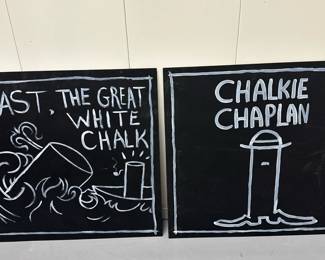 AST, THE GREAT
WHITE
CHALK
CHALKIE
CHAPLAN